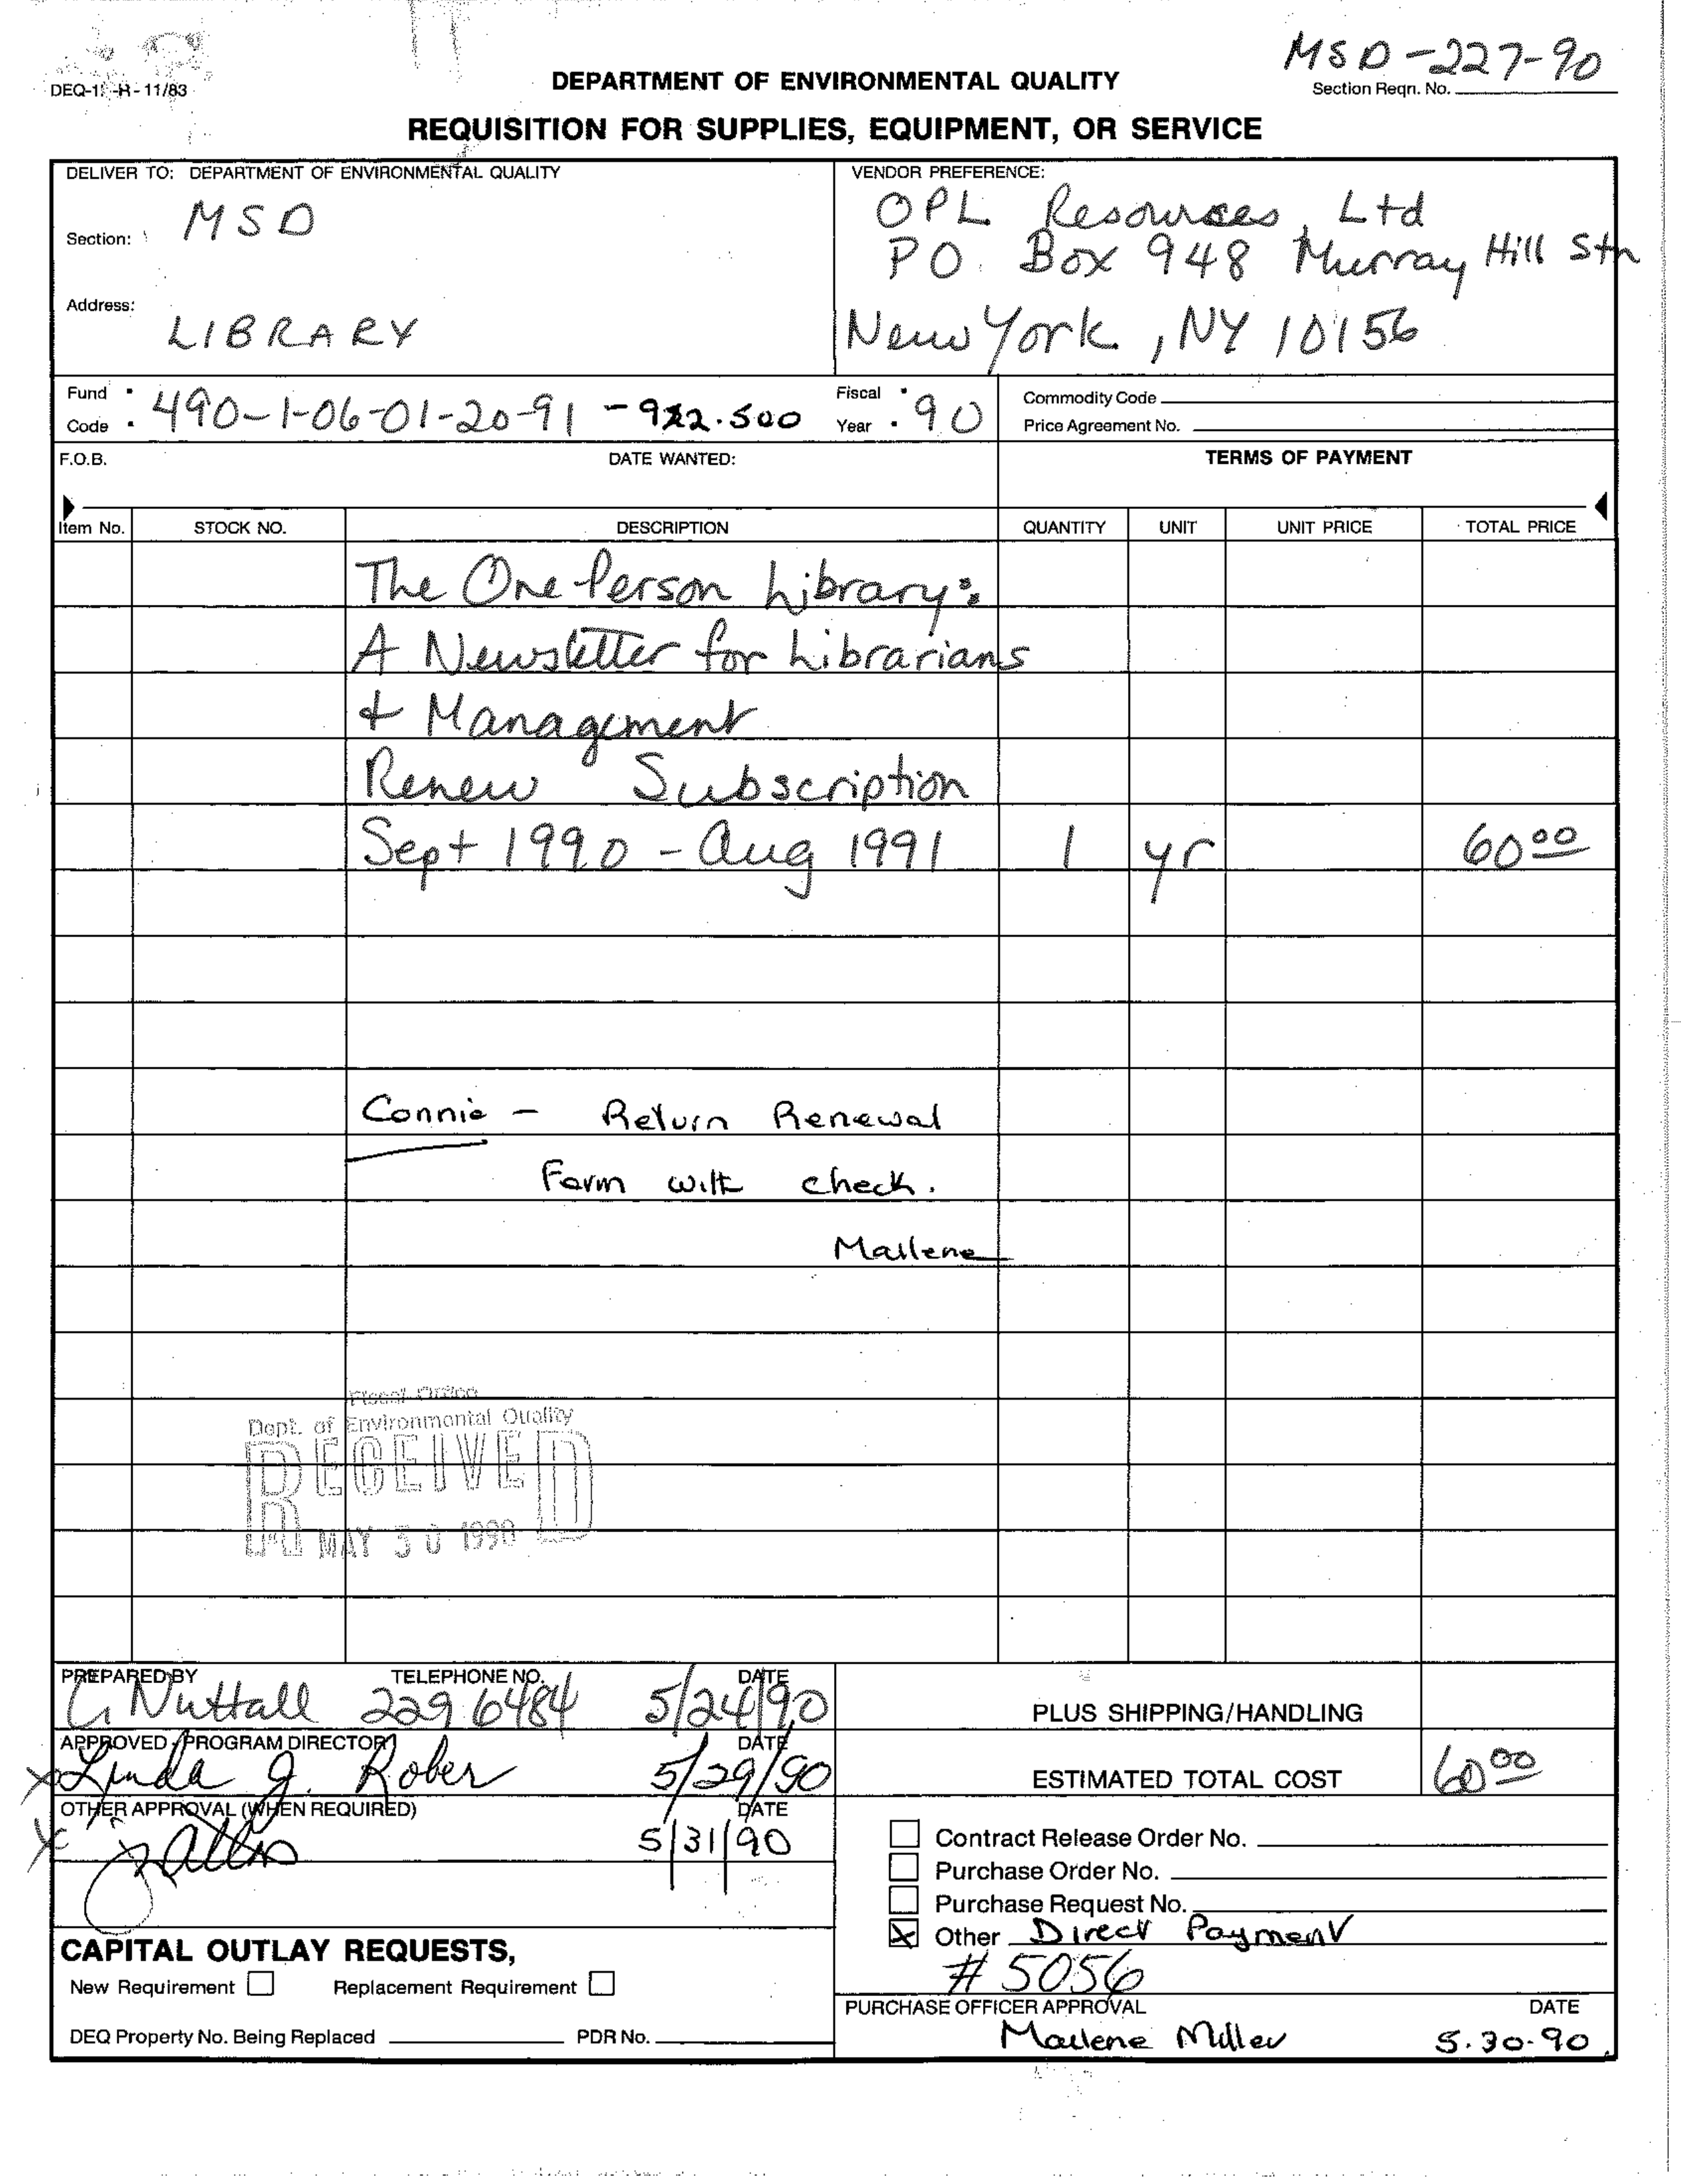 MSD-227-90
DEPARTMENT OF ENVIRONMENTAL QUALITY
Section Reqn. No.
REQUISITION FOR SUPPLIES, EQUIPMENT, OR SERVICE
DELIVER TO: DEPARTMENT OF ENVIRONMENTAL QUALITY
Section: MSD
Address:
LIBRARY
VENDOR PREFERENCE:
OPL Resources, Ltd
PO. Box 948 Murray Hill Stn
New York, NY 10156
Fund Code 490-1-06-01-20-91 -922.500
Fiscal Year 90
Commodity Code
Price Agreement No.
F.O.B. DATE WANTED: TERMS OF PAYMENT
Item No. STOCK NO. DESCRIPTION QUANTITY UNIT UNIT PRICE TOTAL PRICE
The One-Person Library:
A Newsletter for Librarians
+ Management
Renew Subscription
Sept 1990 - Aug 1991 1 yr 60 00
Connie - Return Renewal
Form with check.
Marlene
Fiscal Office
Dept. of Environmental Quality
RECEIVED
MAY 30 1990
PREPARED BY TELEPHONE NO. DATE
Nuttall 229 6484 5/24/90
APPROVED - PROGRAM DIRECTOR DATE
Linda J. Rober 5/29/90
OTHER APPROVAL (WHEN REQUIRED) DATE
5/31/90
PLUS SHIPPING/HANDLING
ESTIMATED TOTAL COST 60 00
Contract Release Order No.
Purchase Order No.
Purchase Request No.
Other Direct Payment
# 5056
CAPITAL OUTLAY REQUESTS,
New Requirement Replacement Requirement
DEQ Property No. Being Replaced PDR No.
PURCHASE OFFICER APPROVAL DATE
Marlene Miller 5.30-90